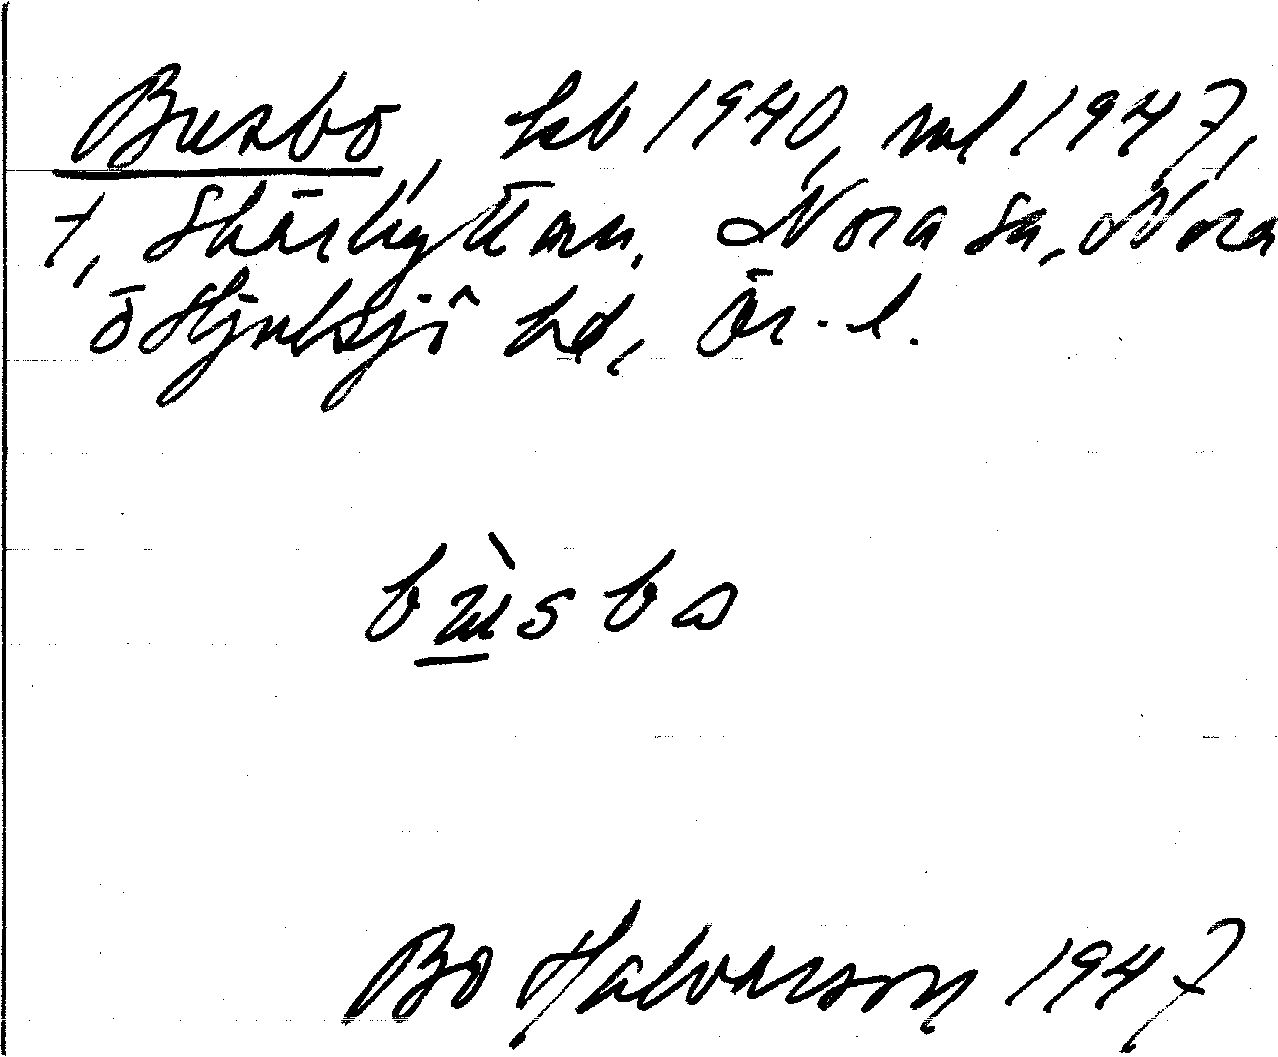 Busbo, kb 1940, ml 1947,
t, Skärhyttan, Nora sn, Nora
o Hjulsjö hd, Ör. l.
bùsbo
Bo Halvarson 1947